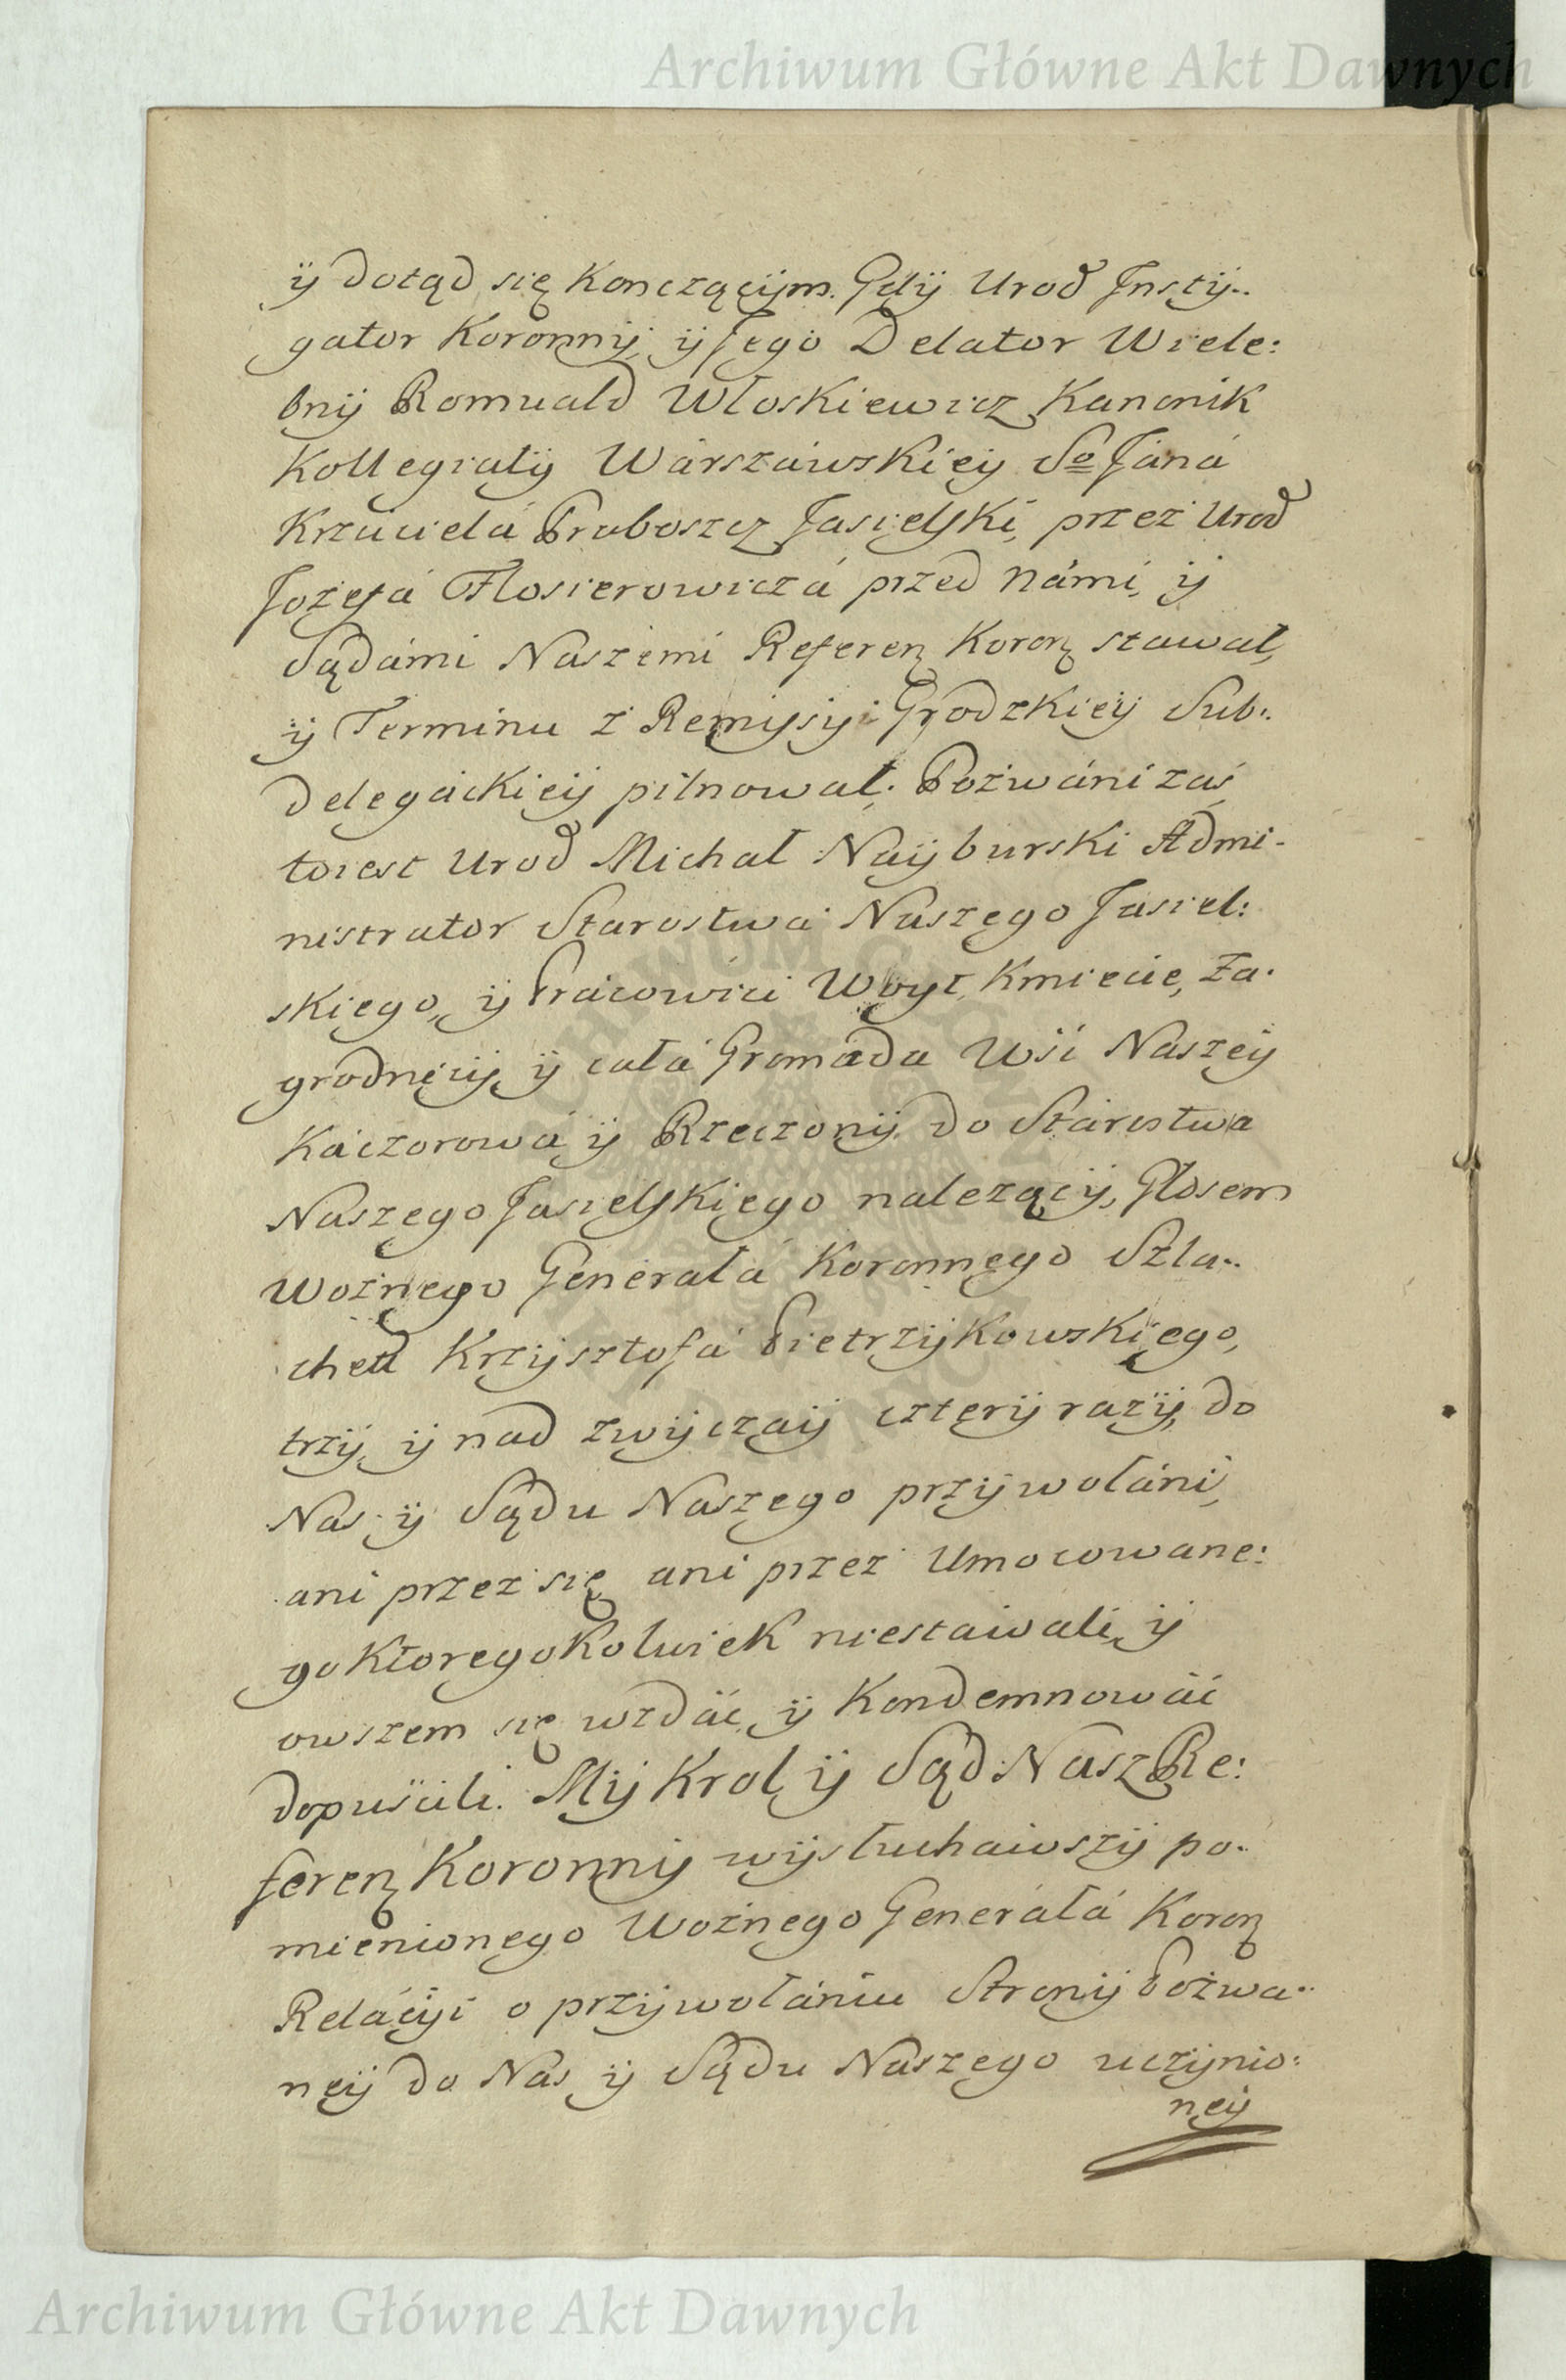 Archiwum Główne Akt Dawnych
ÿ dotąd się Konczącÿm. Gdÿ Urod Jnstÿ..
gator Koronnÿ, ÿ Jego Delator Wiele:
bnÿ Romuald Włoskiewicz Kanonik
Kollegiatÿ Warszáwskieÿ So Jáná
Krzcicielá Proboszcz Jasielski, przez Urod
Jozefá Flosierowiczá przed námi, ÿ
Sądámi Naszemi Referen Koron stawał,
ÿ Terminu z Remisÿi Grodzkieÿ Sub:.
delegáckieÿ pilnował. Pozwáni zaś
toiest Urod Michał Naÿburski Admi-
nistrator Starostwa Naszego Jasiel:
skiego, ÿ Prácowici Woÿt, Kmiecie, Za.
grodnicÿ, ÿ cáłá Gromáda Wśi Naszeÿ
Káczorowá ÿ Rzeczonÿ do Stárostwa
Naszego Jasielskiego nalezącÿ, Głosem
Woznego Generałá Koronnego Szla..
chett Krzÿsztofá Pietrzÿkowskiego,
trzÿ, ÿ nad zwÿczaÿ czterÿ razÿ, do
Nas ÿ Sądu Naszego przÿwołáni,
ani przez się, ani przez Umocowane:
go Ktoregokolwiek niestawali, ÿ
owszem się wzdać, ÿ Kondemnowáć
dopuścili. Mÿ Krol, ÿ Sąd Nasz Re:
feren Koronnÿ wÿsłuchawszÿ po..
mienionego Woznego Generałá Koron
Relácÿi o przÿwołániu Stronÿ Pozwa..
neÿ do Nas, ÿ Sądu Naszego uczÿnio:
neÿ
Archiwum Główne Akt Dawnych